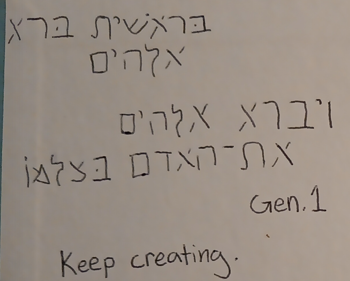 בראשית ברא
אלהים
ויברא אלהים
את־האדם בצלמו
Gen. 1
Keep creating.